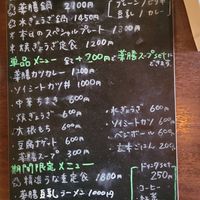 薬膳鍋 2100円
水ぎょうざ鍋 1450円
本日のスペシャルプレート 1300円
焼ぎょうざ定食 1200円
単品メニュー 全て+200円で薬膳スープsetにできます。
薬膳カツカレー 1200円
ソイミートカツ丼 1000円
中華ちまき 600円
焼ぎょうざ 600円
水ぎょうざ 600円
大根もち 600円
ソイミートカツ 600円
豆腐ナゲット 600円
薬膳スープ 350円
玄米ごはん 200円
期間限定メニュー
定食 1800円
薬膳豆乳ラーメン 1000円
ドリンクset
250円
コーヒー
紅茶
豆乳/カレー